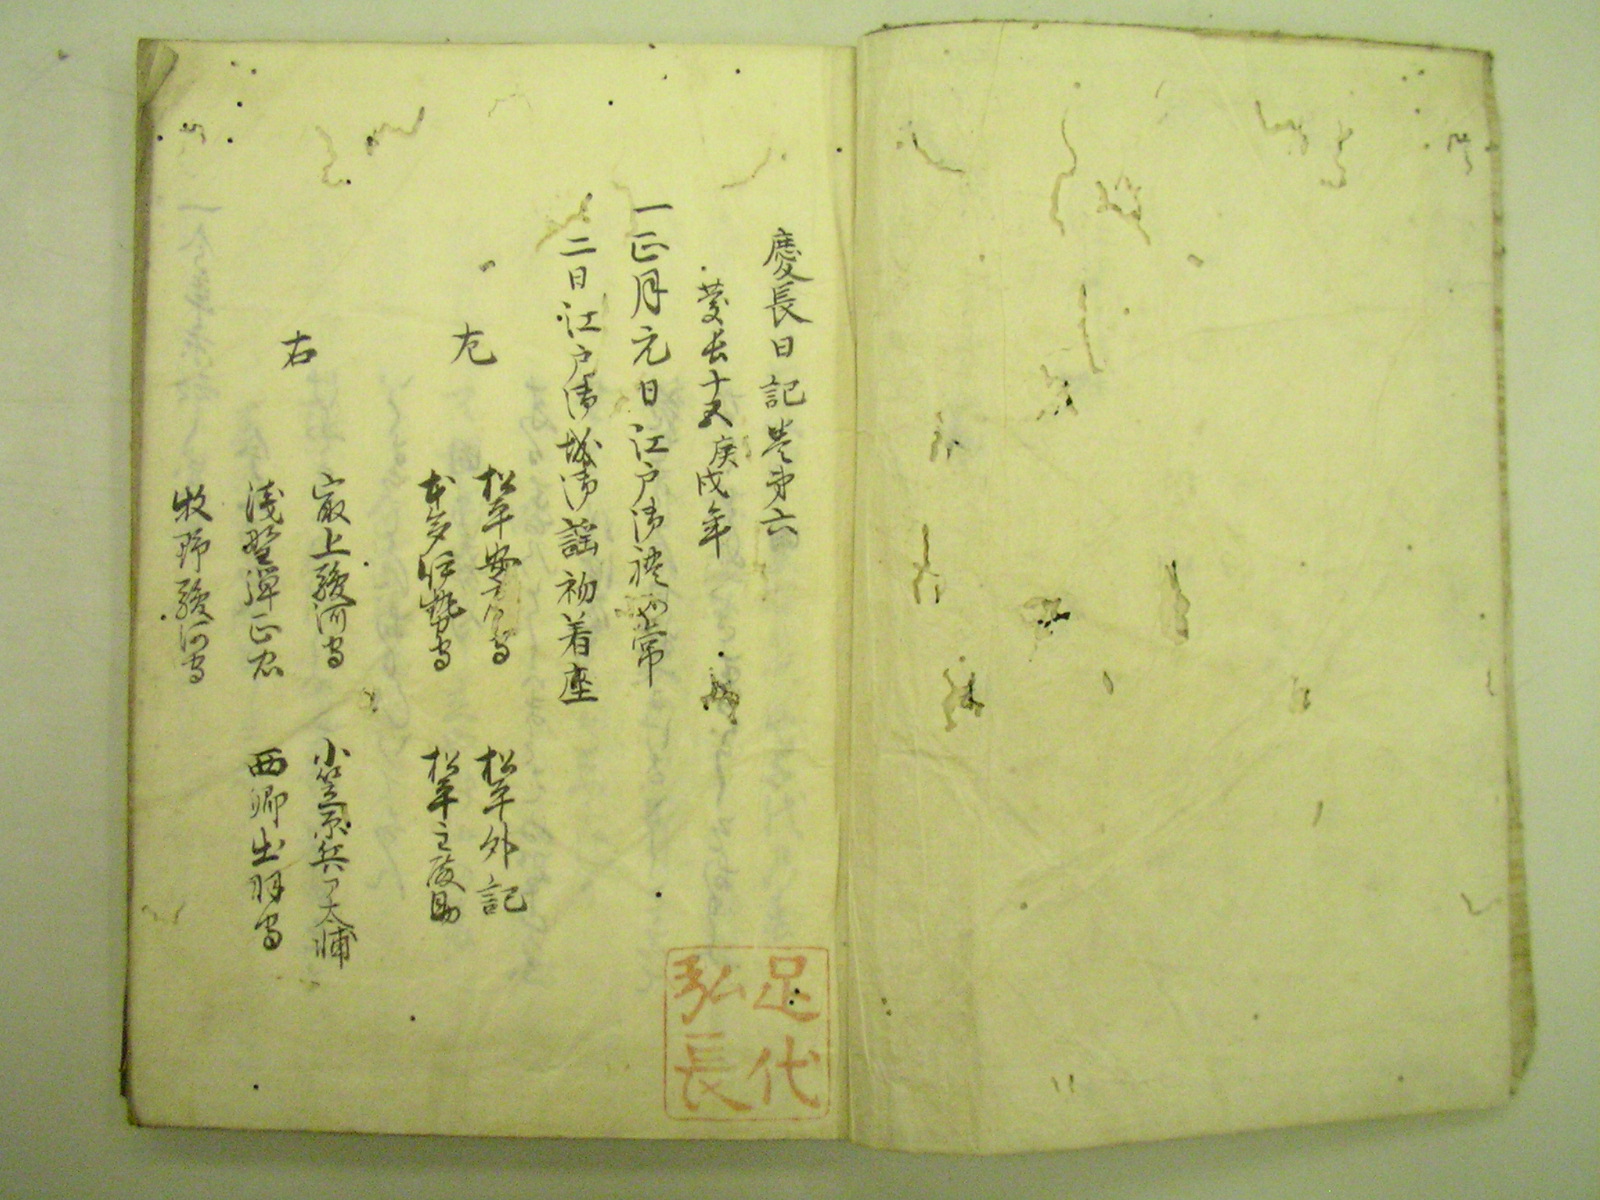 慶長日記巻第六
慶長十五庚戌年
一正月元日江戸御禮如常
二日江戸御城御謡初着座
左
松平安房守
松平外記
本多伊勢守
松平主殿助
右
最上駿河守
小笠原兵部太輔
淺野弾正忠
西郷出羽守
牧野駿河守
足代
弘長